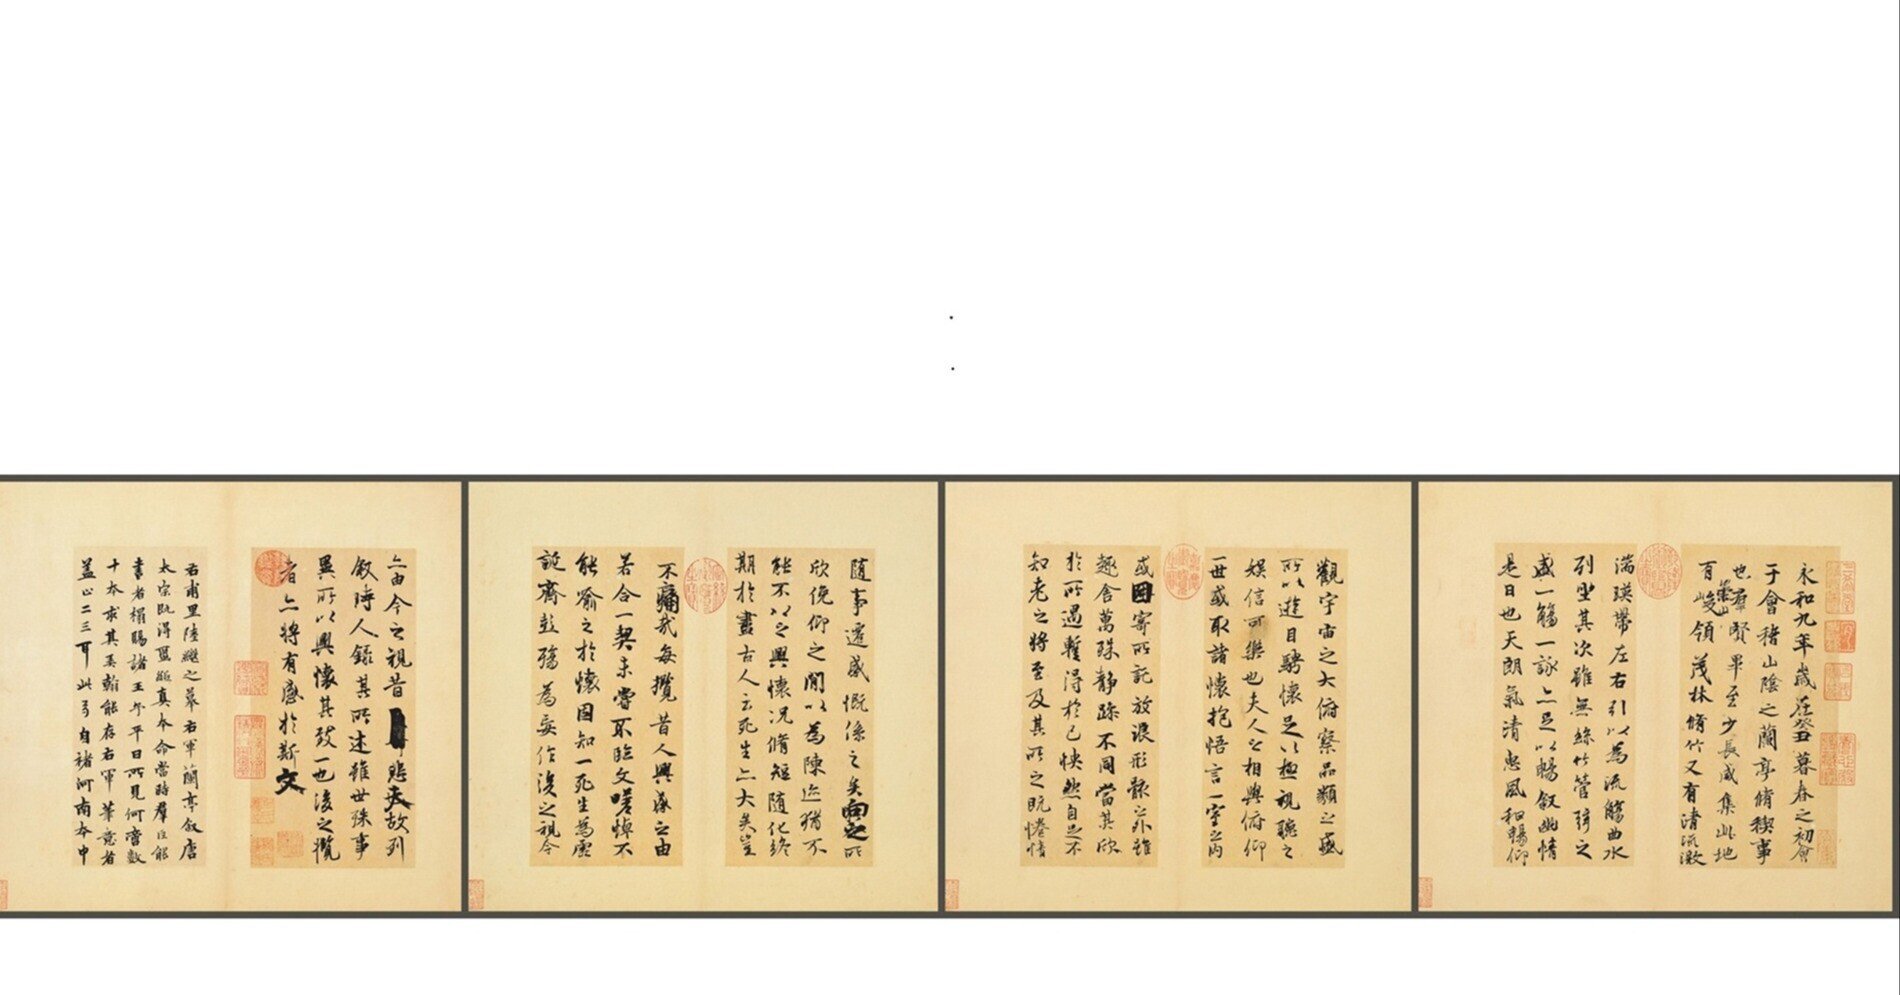 永和九年歲在癸丑暮春之初會
于會稽山陰之蘭亭脩禊事
也羣賢畢至少長咸集此地
有崇山峻領茂林脩竹又有清流激
湍暎帶左右引以為流觴曲水
列坐其次雖無絲竹管弦之
盛一觴一詠亦足以暢敘幽情
是日也天朗氣清惠風和暢仰
觀宇宙之大俯察品類之盛
所以遊目騁懷足以極視聽之
娛信可樂也夫人之相與俯仰
一世或取諸懷抱悟言一室之內
或因寄所託放浪形骸之外雖
趣舍萬殊靜躁不同當其欣
於所遇暫得於己怏然自足不
知老之將至及其所之既惓情
隨事遷感慨係之矣向之所
欣俛仰之閒以為陳迹猶不
能不以之興懷況脩短隨化終
期於盡古人云死生亦大矣豈
不痛哉每攬昔人興感之由
若合一契未嘗不臨文嗟悼不
能喻之於懷固知一死生為虛
誕齊彭殤為妄作後之視今
亦由今之視昔悲夫故列
敘時人錄其所述雖世殊事
異所以興懷其致一也後之攬
者亦將有感於斯文
右甫里陸繼之摹右軍蘭亭敘唐
太宗既得繭紙真本命當時羣臣能
書者搨賜諸王余平日所見何啻數
十本求其秉翰能存右軍筆意者
蓋止二三耳此弓自褚河南本中